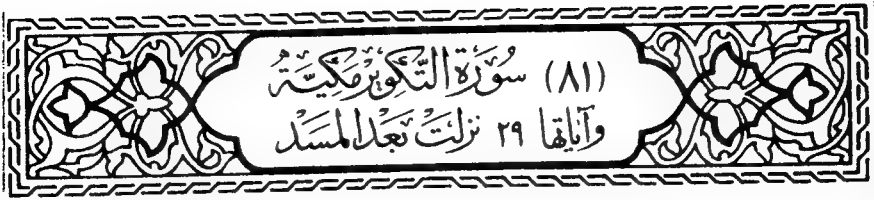 (٨١) سُورَة التَّكْوِير مَكِّيَّةٌ
وَآيَاتِهَا ٢٩ نَزَلَتْ بَعْدَ المَسَد